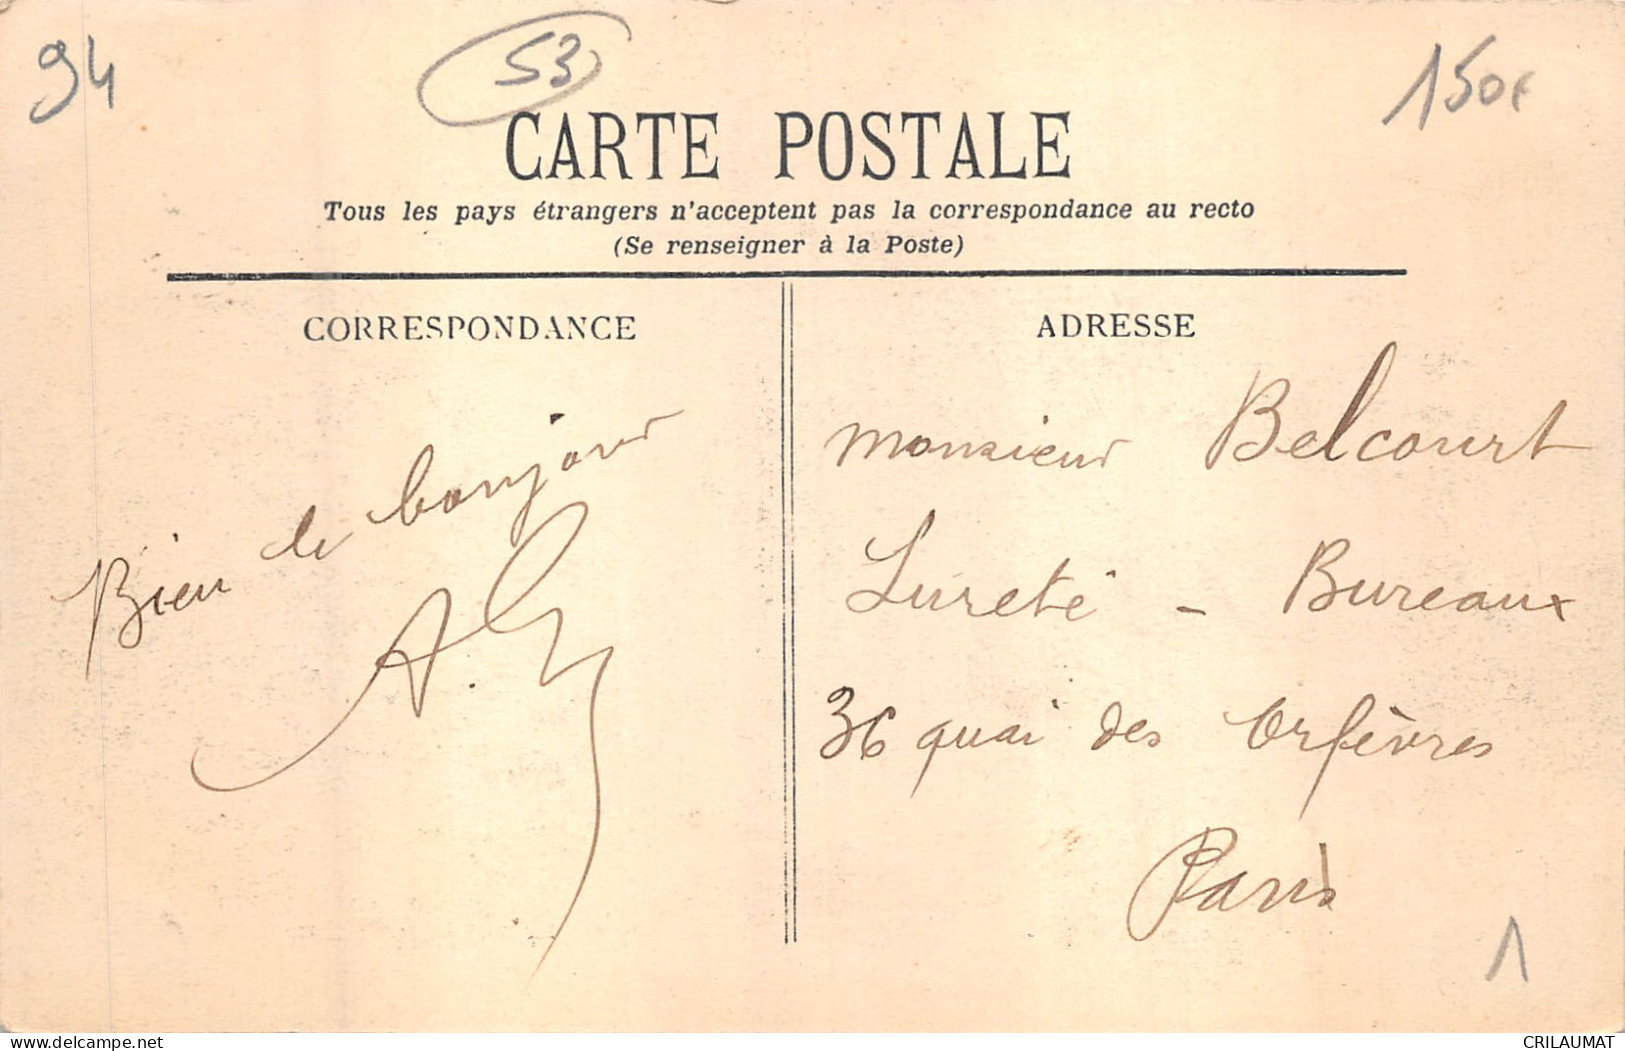 94
53
150€
CARTE POSTALE
Tous les pays étrangers n'acceptent pas la correspondance au recto
(Se renseigner à la Poste)
CORRESPONDANCE
ADRESSE
Bien le bonjour
monsieur Belcourt
Sureté - Bureaux
36 quai des Orfèvres
Paris
1
www.delcampe.net
CRILAUMAT